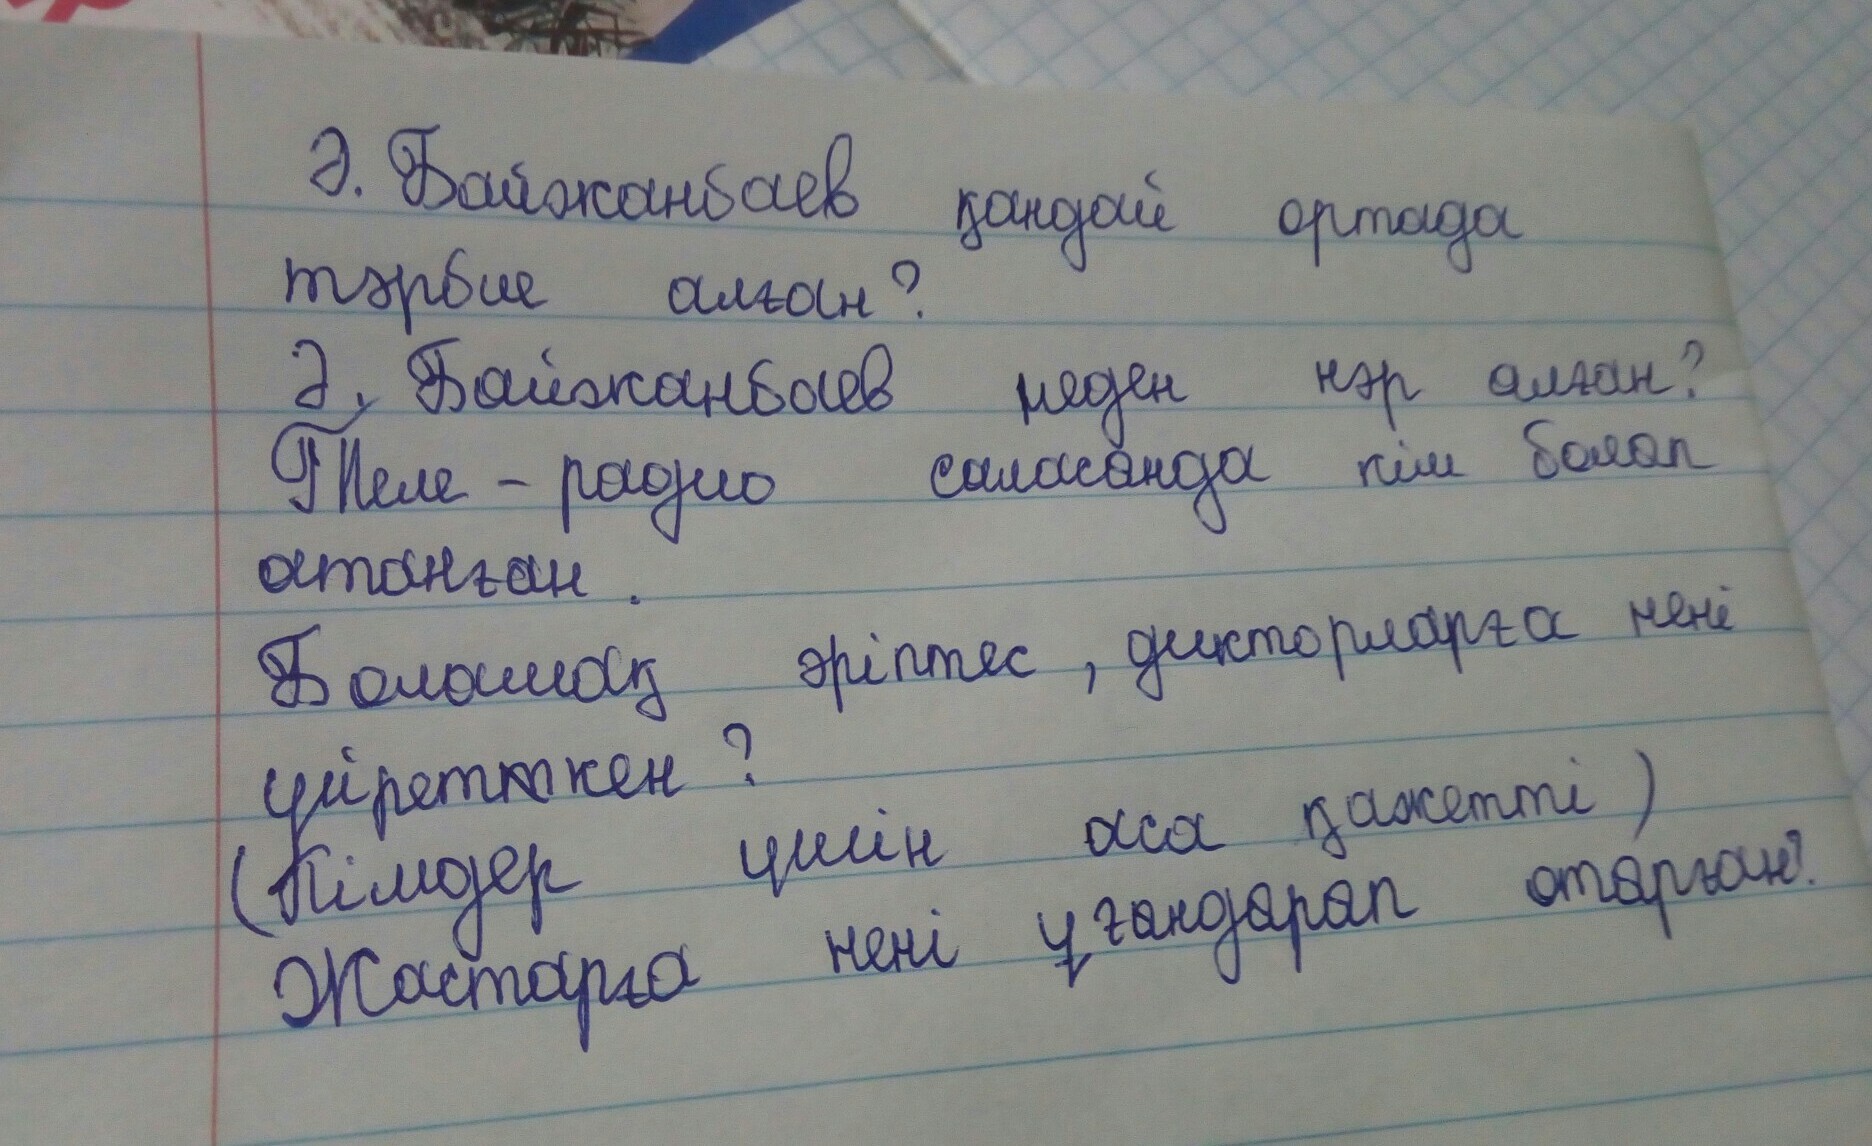 Ә. Байжанбаев қандай ортада
тәрбие алған?
Ә. Байжанбаев неден нәр алған?
Теле - радио саласанда кім болап
атанған.
Болашақ әріптес, дикторларға нені
үйретткен?
(Кімдер үшін аса қажетті)
Жастарға нені ұғандарап отарған?